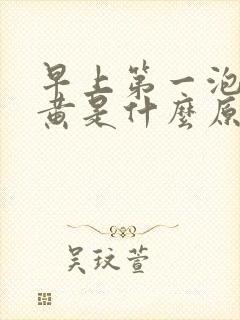 早上第一泡
黄是什麼原
吴玟萱